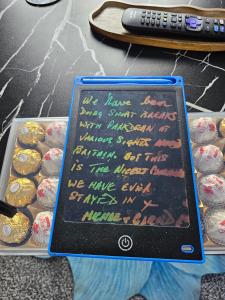 We have been
Doing Short Breaks
with Parkdean at
various sights
Britain. But this
is the Nicest
we have ever
stayed in x